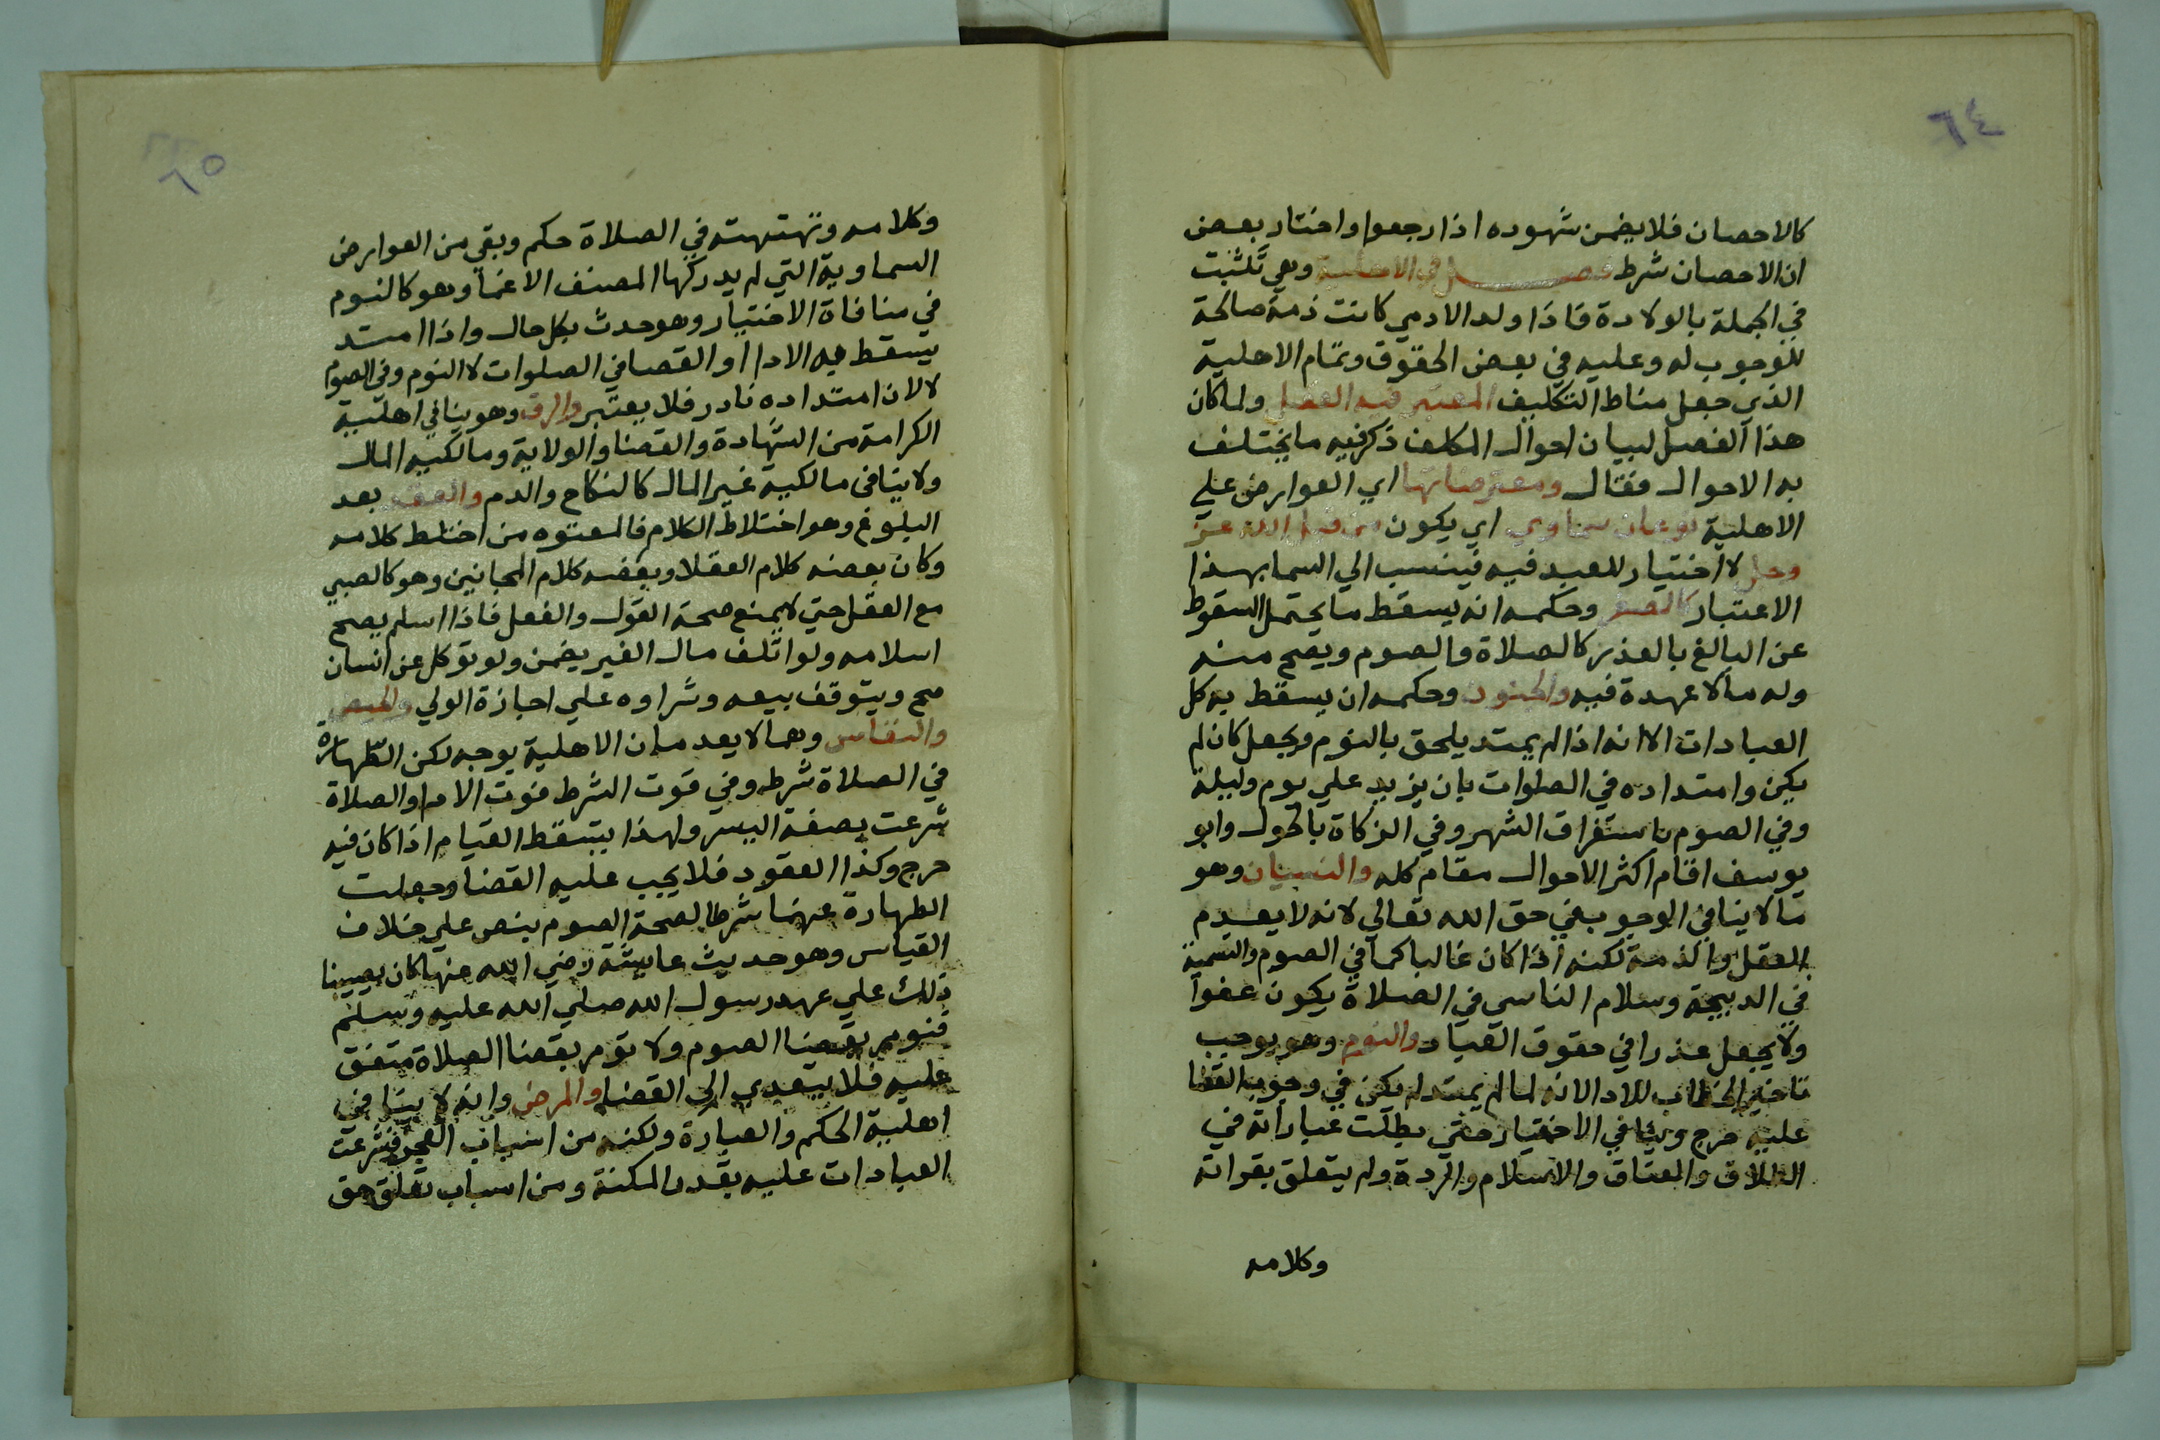 ٦٤
كالاحصان فلا يضمن شهوده اذا رجعوا واختار بعض
ان الاحصان شرط فصل في الاهلية وهي تثبت
في الجملة بالولادة فاذا ولد الادمي كانت ذمة صالحة
للوجوب له وعليه في بعض الحقوق وتمام الاهلية
الذي جعل مناط التكليف المعتبر فيه العقل ولما كان
هذا الفصل لبيان احوال المكلف ذكر فيه ما يختلف
به الاحوال فقال ومعترضاتها اي العوارض علي
الاهلية نوعان سماوي اي يكون من قبل الله عز
وجل لا اختيار للعبد فيه فينسب الي السما بهذا
الاعتبار كالصغر وحكمه انه يسقط ما يحتمل السقوط
عن البالغ بالعذر كالصلاة والصوم ويصح منه
وله ما لا عهدة فيه والجنون وحكمه ان يسقط به كل
العبادات الا انه اذا لم يمتد يلحق بالنوم ويجعل كان لم
يكن وامتداده في الصلوات بان يزيد علي يوم وليلة
وفي الصوم باستغراق الشهر وفي الزكاة بالحول وابو
يوسف اقام اكثر الاحوال مقام كله والنسيان وهو
مما لا ينافي الوجوب في حق الله تعالي لانه لا يعدم
العقل والذمة لكنه اذا كان غالبا كما في الصوم والتسمية
في الدبيحة وسلام الناسي في الصلاة يكون عفوا
ولا يجعل عذرا في حقوق العباد والنوم وهو يوجب
تاخير الخطاب للادا لانه لما لم يمتد لم يكن في وجوب القضا
عليه حرج وينافي الاختيار حتي بطلت عباراته في
الطلاق والعتاق والاسلام والردة ولم يتعلق بقراته
وكلامه
٦٥
وكلامه وقهقهته في الصلاة حكم وبقي من العوارض
السماوية التي لم يدركها المصنف الاغما وهو كالنوم
في منافاة الاختيار وهو حدث بكل حال واذا امتد
يسقط به الادا او القضا في الصلوات لا النوم وفي الصوم
لا لان امتداده نادر فلا يعتبر والرق وهو ينافي اهلية
الكرامة من الشهادة والقضا والولاية ومالكيه المال
ولا ينافي مالكية غير المال كالنكاح والدم والعته بعد
البلوغ وهو اختلاط الكلام فالمعتوه من اختلط كلامه
وكان بعضه كلام العقلا وبعضه كلام المجانين وهو كالصبي
مع العقل حتي لا يمنع صحة القول والفعل فاذا اسلم يصح
اسلامه ولو اتلف مال الغير يضمن ولو توكل عن انسان
صح ويتوقف بيعه وشراوه علي اجازة الولي والحيض
والنفاس وهما لا يعدمان الاهلية بوجه لكن الطهارة
في الصلاة شرط وفي فوت الشرط فوت الادا والصلاة
شرعت بصفة اليسر ولهذا يسقط القيام اذا كان فيه
حرج وكذا القعود فلا يجب عليه القضا وجعلت
الطهارة عنهما شرطا لصحة الصوم بنص علي خلاف
القياس وهو حديث عايشة رضي الله عنها كان يصيبنا
ذلك علي عهد رسول الله صلي الله عليه وسلم
فنومر بقضا الصوم ولا نومر بقضا الصلاة متفق
عليه فلا يتعدي الي القضا والمرض وانه لا ينافي
اهلية الحكم والعبارة ولكنه من اسباب العجز فشرعت
العبادات عليه بقدر المكنة ومن اسباب تعلق حق